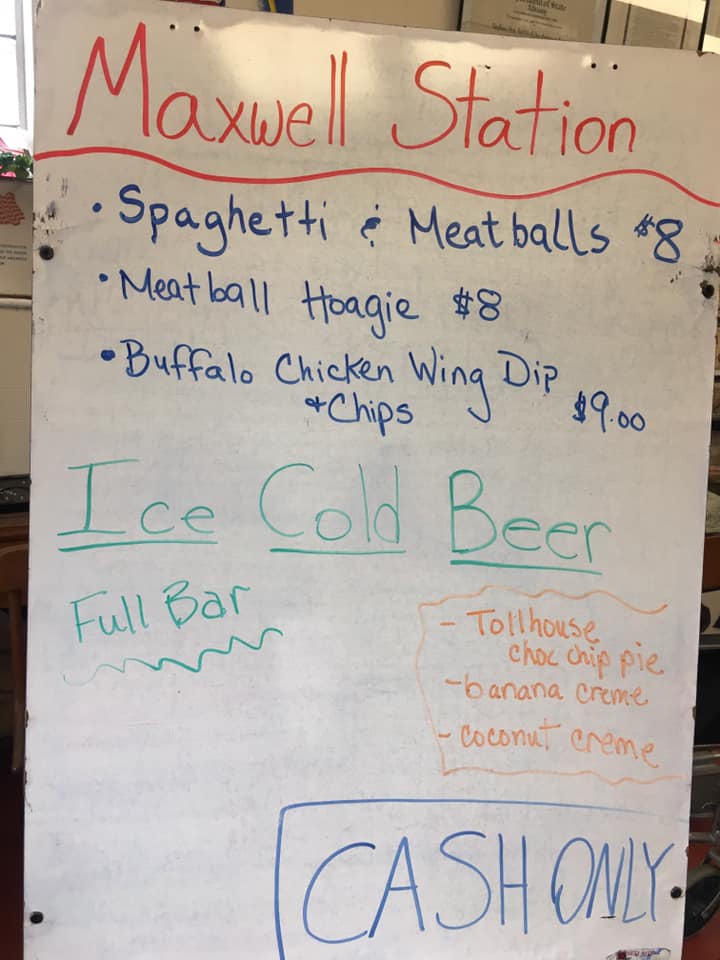 Maxwell Station
• Spaghetti & Meatballs $8
• Meatball Hoagie $8
• Buffalo Chicken Wing Dip
+ Chips $9.00
Ice Cold Beer
Full Bar
- Tollhouse
choc chip pie
- banana creme
- coconut creme
CASH ONLY